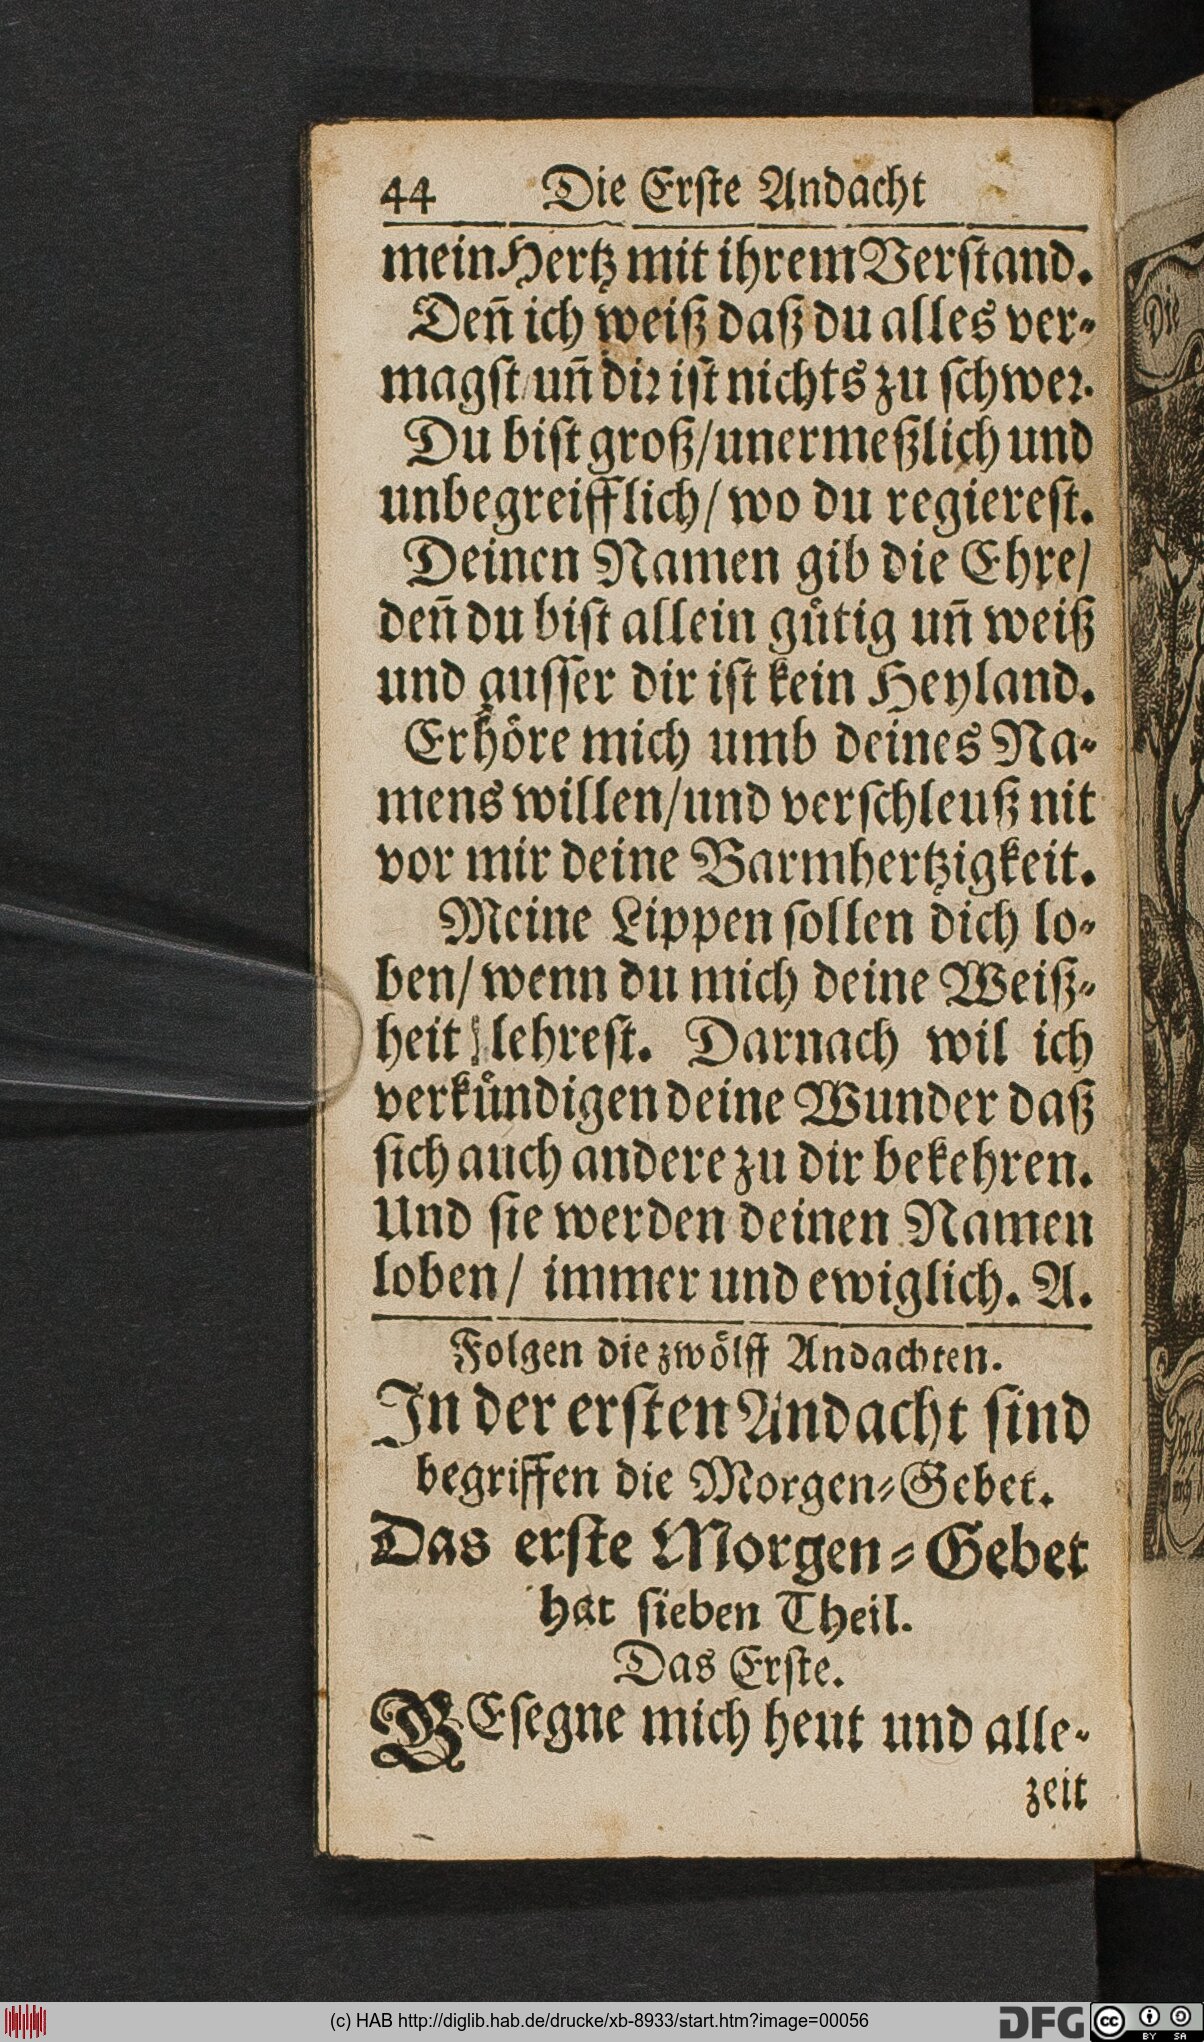 44 Die Erſte Andacht
mein Hertz mit ihrem Verſtand.
Deñ ich weiß daß du alles ver⸗
magſt/ uñ dir iſt nichts zu ſchwer.
Du biſt groß/ unermeßlich und
unbegreifflich/ wo du regiereſt.
Deinen Namen gib die Ehre/
deñ du biſt allein guͤtig uñ weiß
und auſſer dir iſt kein Heyland.
Erhoͤre mich umb deines Na⸗
mens willen/ und verſchleuß nit
vor mir deine Barmhertzigkeit.
Meine Lippen ſollen dich lo⸗
ben/ wenn du mich deine Weiß⸗
heit lehreſt. Darnach wil ich
verkuͤndigen deine Wunder daß
ſich auch andere zu dir bekehren.
Und ſie werden deinen Namen
loben/ immer und ewiglich. A.
Folgen die zwoͤlff Andachten.
In der erſten Andacht ſind
begriffen die Morgen⸗Gebet.
Das erſte Morgen⸗Gebet
hat ſieben Theil.
Das Erſte.
BEſegne mich heut und alle⸗
zeit
Die
(c) HAB http://diglib.hab.de/drucke/xb-8933/start.htm?image=00056
DFG
cc BY SA